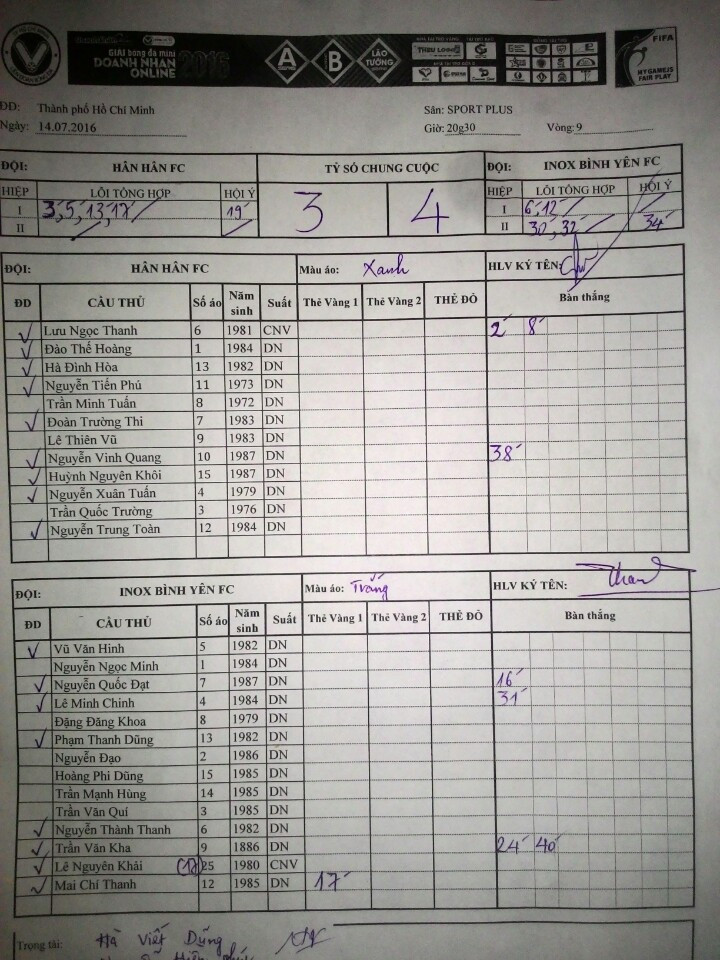 GIẢI bóng đá mini
DOANH NHÂN 2016
ONLINE
A B LÃO TƯỚNG
FIFA
MY GAME IS
FAIR PLAY
ĐĐ: Thành phố Hồ Chí Minh Sân: SPORT PLUS
Ngày: 14.07.2016 Giờ: 20g30 Vòng: 9
ĐỘI: HÂN HÂN FC TỶ SỐ CHUNG CUỘC ĐỘI: INOX BÌNH YÊN FC
HIỆP LỖI TỔNG HỢP HỘI Ý 3 4 HIỆP LỖI TỔNG HỢP HỘI Ý
I 3', 5', 13', 17' 19' I 6', 12'
II II 30', 32' 34'
ĐỘI: HÂN HÂN FC Màu áo: Xanh HLV KÝ TÊN:
ĐD CẦU THỦ Số áo Năm sinh Suất Thẻ Vàng 1 Thẻ Vàng 2 THẺ ĐỎ Bàn thắng
Lưu Ngọc Thanh 6 1981 CNV 2' 8'
Đào Thế Hoàng 1 1984 DN
Hà Đình Hòa 13 1982 DN
Nguyễn Tiến Phú 11 1973 DN
Trần Minh Tuấn 8 1972 DN
Đoàn Trường Thi 7 1983 DN
Lê Thiên Vũ 9 1983 DN
Nguyễn Vinh Quang 10 1987 DN 38'
Huỳnh Nguyên Khôi 15 1987 DN
Nguyễn Xuân Tuấn 4 1979 DN
Trần Quốc Trường 3 1976 DN
Nguyễn Trung Toàn 12 1984 DN
ĐỘI: INOX BÌNH YÊN FC Màu áo: Trắng HLV KÝ TÊN:
ĐD CẦU THỦ Số áo Năm sinh Suất Thẻ Vàng 1 Thẻ Vàng 2 THẺ ĐỎ Bàn thắng
Vũ Văn Hinh 5 1982 DN
Nguyễn Ngọc Minh 1 1984 DN
Nguyễn Quốc Đạt 7 1987 DN 16'
Lê Minh Chinh 4 1984 DN 31'
Đặng Đăng Khoa 8 1979 DN
Phạm Thanh Dũng 13 1982 DN
Nguyễn Đạo 2 1986 DN
Hoàng Phi Dũng 15 1985 DN
Trần Mạnh Hùng 14 1985 DN
Trần Văn Quí 3 1985 DN
Nguyễn Thành Thanh 6 1982 DN
Trần Văn Kha 9 1886 DN 24' 40'
Lê Nguyên Khải 25 1980 CNV
Mai Chí Thanh 12 1985 DN 17'
Trọng tài: Hà Việt Dũng